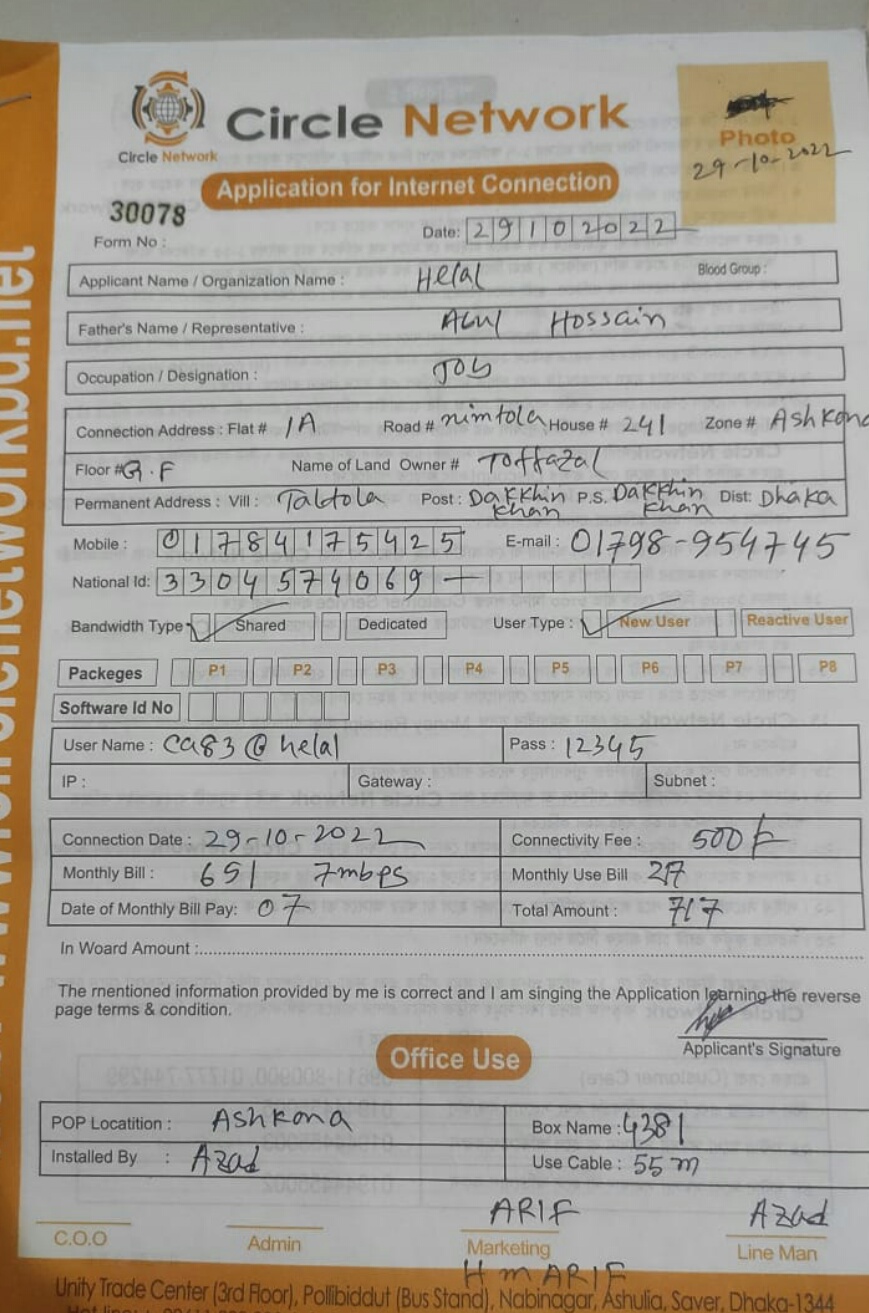 Circle Network
Circle Network
Photo
29-10-2022
Application for Internet Connection
30078
Form No :
Date: 29102022
Applicant Name / Organization Name : Helal Blood Group :
Father's Name / Representative : Abul Hossain
Occupation / Designation : Job
Connection Address : Flat # 1A Road # nimtola House # 241 Zone # Ashkona
Floor # G.F Name of Land Owner # Toffazal
Permanent Address : Vill : Taltola Post : Dakkhin khan P.S. Dakkhin khan Dist: Dhaka
Mobile : 01784175425 E-mail : 01798-954745
National Id: 3304574069
Bandwidth Type Shared Dedicated User Type : New User Reactive User
Packeges P1 P2 P3 P4 P5 P6 P7 P8
Software Id No
User Name : ca83@helal Pass : 12345
IP : Gateway : Subnet :
Connection Date : 29-10-2022 Connectivity Fee : 500
Monthly Bill : 651 7mbps Monthly Use Bill 217
Date of Monthly Bill Pay: 07 Total Amount : 717
In Woard Amount :
The mentioned information provided by me is correct and I am singing the Application learning the reverse
page terms & condition.
Applicant's Signature
Office Use
POP Locatition : Ashkona Box Name : 4381
Installed By : Azad Use Cable : 55m
ARIF Azad
C.O.O Admin Marketing Line Man
H m ARIF
Unity Trade Center (3rd Floor), Pollibiddut (Bus Stand), Nabinagar, Ashulia, Saver, Dhaka-1344